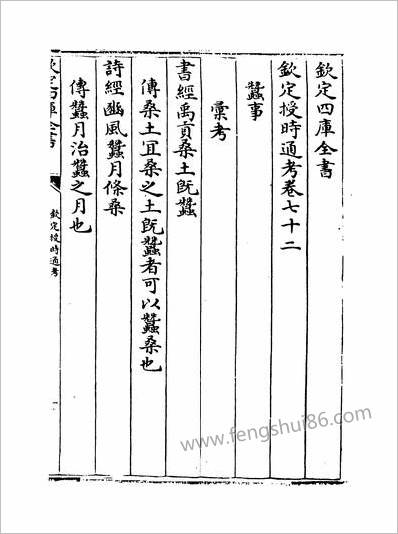 欽定四庫全書
欽定授時通考卷七十二
蠶事
彙考
書經禹貢桑土既蠶
傳桑土宜桑之土既蠶者可以蠶桑也
詩經豳風蠶月條桑
傳蠶月治蠶之月也
欽定授時通考
www.fengshui86.com